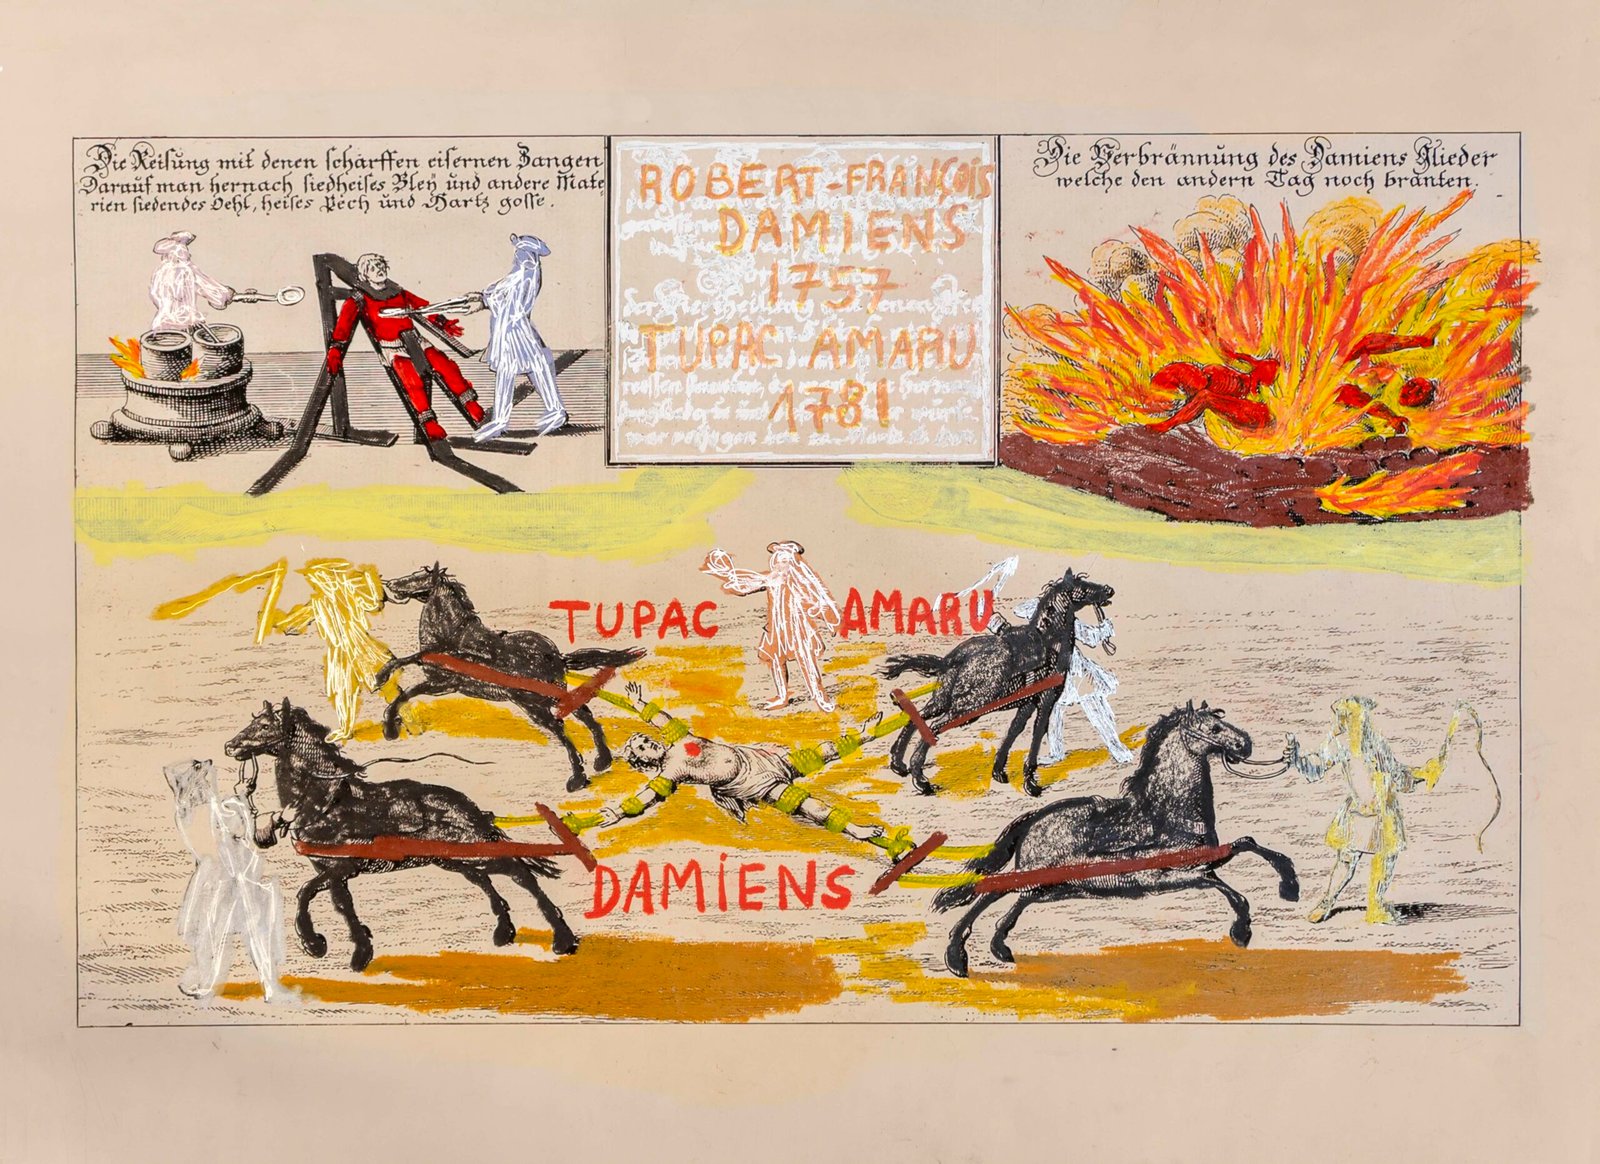 Die Reisung mit denen schärffen eisernen Zangen
Darauf man hernach siedheises Bley und andere Mate
rien siedendes Oehl, heises Pech und Hartz gosse.
ROBERT-FRANÇOIS
DAMIENS
1757
TUPAC AMARU
1781
Die Verbrännung des Damiens Glieder
welche den andern Tag noch bränten.
TUPAC AMARU
DAMIENS